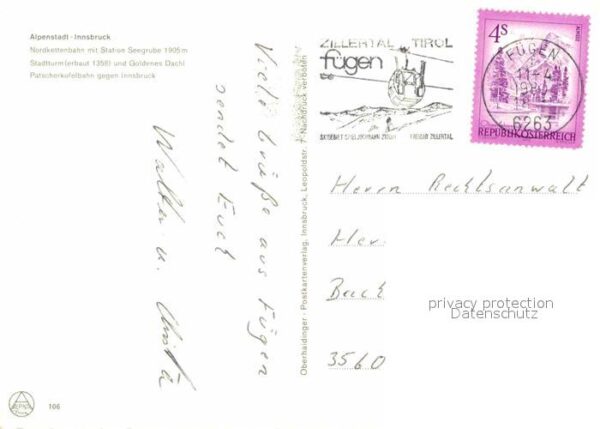 Alpenstadt - Innsbruck
Nordkettenbahn mit Station Seegrube 1905 m
Stadtturm (erbaut 1358) und Goldenes Dachl
Patscherkofelbahn gegen Innsbruck
Viele Grüße aus Fügen
sendet Euch
Walter u.
Oberhaidinger - Postkartenverlag, Innsbruck, Leopoldstr. 7 - Nachdruck verboten
ZILLERTAL TIROL
fügen
ZILLERTAL
4S
REPUBLIK ÖSTERREICH
FÜGEN
6263
Herrn Rechtsanwalt
3560
privacy protection
Datenschutz
106